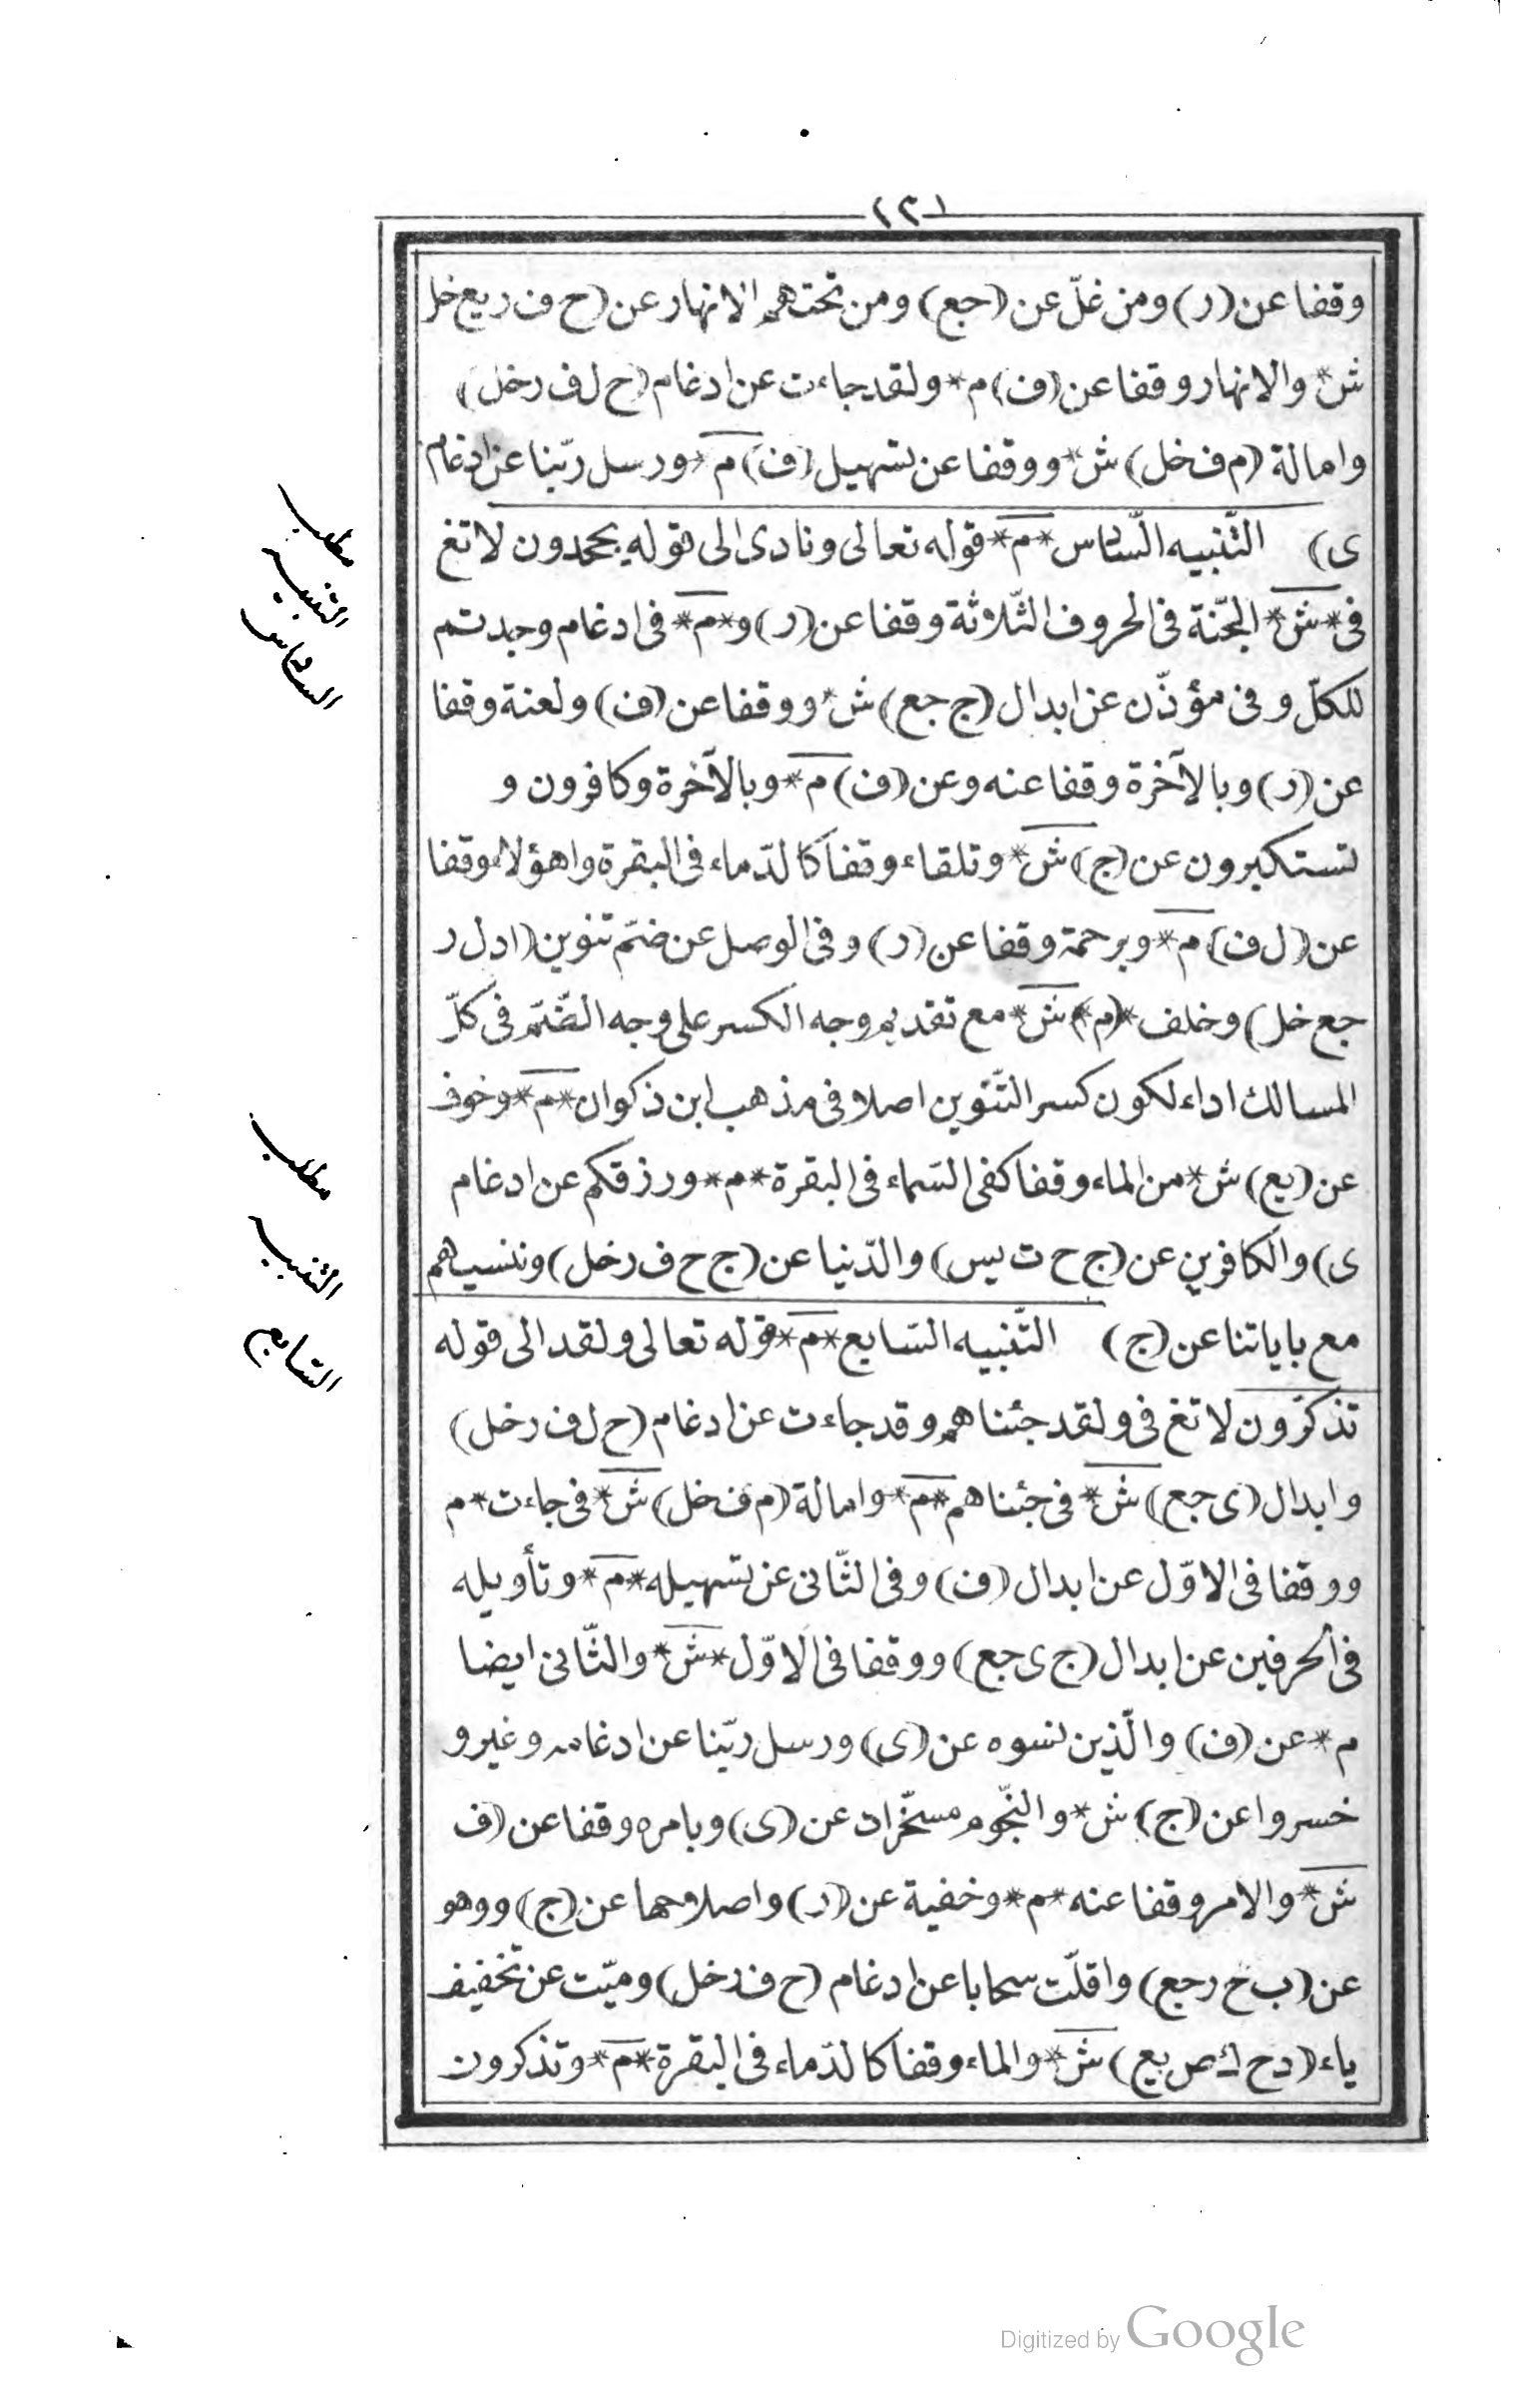 ١٣١
وقفا عن (ر) ومن غلّ عن (جع) ومن تحتهم الانهار عن (ح ف ر يع خل
ش* والانهار وقفا عن (ف) م* ولقد جاءت عن ادغام (ح ل ف ر خل)
وامالة (م ف خل) ش* ووقفا عن تسهيل (ف) م* ورسل ربّنا عن ادغام
ى) التّنبيه السّادس *م* قوله تعالى ونادى الى قوله يجحدون لا تغ
فى *ش* الجنّة فى الحروف الثّلاثة وقفا عن (ر) و *م* فى ادغام وجدتم
للكلّ وفى مؤذّن عن ابدال (ج جع) ش* ووقفا عن (ف) ولعنة وقفا
عن (ر) وبالآخرة وقفا عنه وعن (ف) م* وبالآخرة وكافرون و
تستكبرون عن (ج) ش* وتلقاء وقفا كالدّماء فى البقرة واهؤلاء وقفا
عن (ل ف) م* وبرحمة وقفا عن (ر) وفى الوصل عن ضمّ تنوين (ا د ل ر
جع خل) وخلف *(م) ش* مع تقديم وجه الكسر على وجه الضّمّ فى كلّ
المسالك اداء لكون كسر التّنوين اصلا فى مذهب ابن ذكوان *م* وخوف
عن (يع) ش* من الماء وقفا كفى السّماء فى البقرة *م* ورزقكم عن ادغام
ى) والكافرين عن (ج ح ت يس) والدّنيا عن (ج ح ف ر خل) وننسيهم
مع باياتنا عن (ج) التّنبيه السّابع *م* قوله تعالى ولقد الى قوله
تذكّرون لا تغ فى ولقد جئناهم وقد جاءت عن ادغام (ح ل ف ر خل)
وابدال (ى جع) ش* فى جئناهم *م* وامالة (م ف خل) ش* فى جاءت *م
ووقفا فى الاوّل عن ابدال (ف) وفى الثّانى عن تسهيله *م* وتأويله
فى الحرفين عن ابدال (ج ى جع) ووقفا فى الاوّل *ش* والثّانى ايضا
م* عن (ف) والّذين نسوه عن (ى) ورسل ربّنا عن ادغامه وغير و
خسروا عن (ج) ش* والنّجوم مسخّرات عن (ى) وبامره وقفا عن (ف
ش* والامر وقفا عنه *م* وخفية عن (ر) واصلاحها عن (ج) ووهو
عن (ب ح ر جع) واقلّت سحابا عن ادغام (ح ف ر خل) وميّت عن تخفيف
ياء (د ح ك ص يع) ش* والماء وقفا كالدّماء فى البقرة *م* وتذكرون
مطلب
التنبيه
السادس
مطلب
التنبيه
السّابع
Digitized by Google